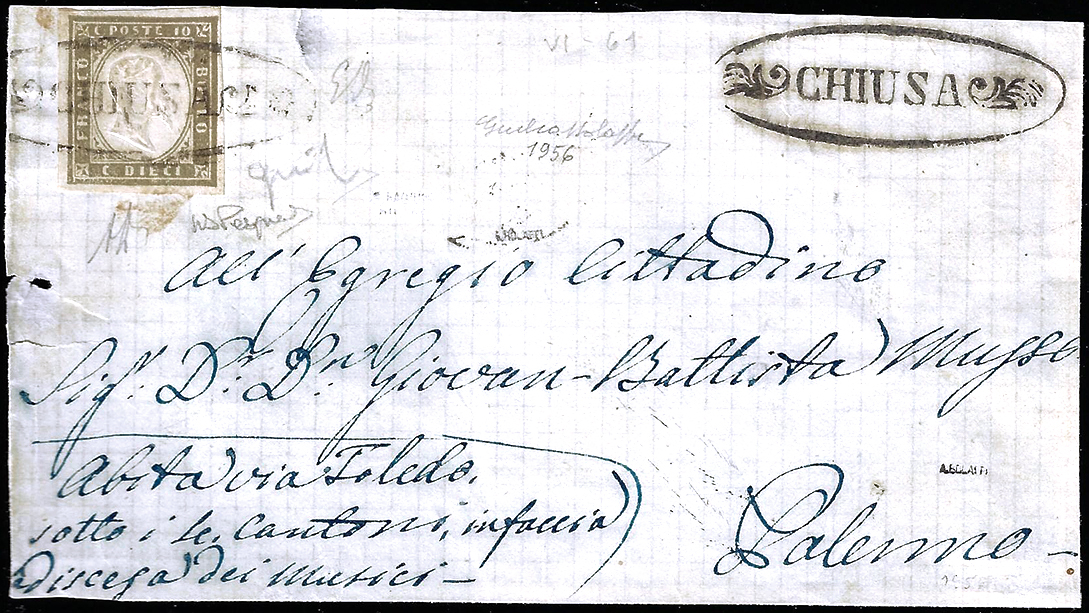 C POSTE 10
FRANCO
BOLLO
C DIECI
CHIUSA
CHIUSA
VI - 61
1956
All' Egregio Cittadino
Sigr. Dr. Dn. Giovan-Battista
Abita via Toledo.
sotto i 4. Cantoni, in faccia
discesa dei Musici -
Palermo -